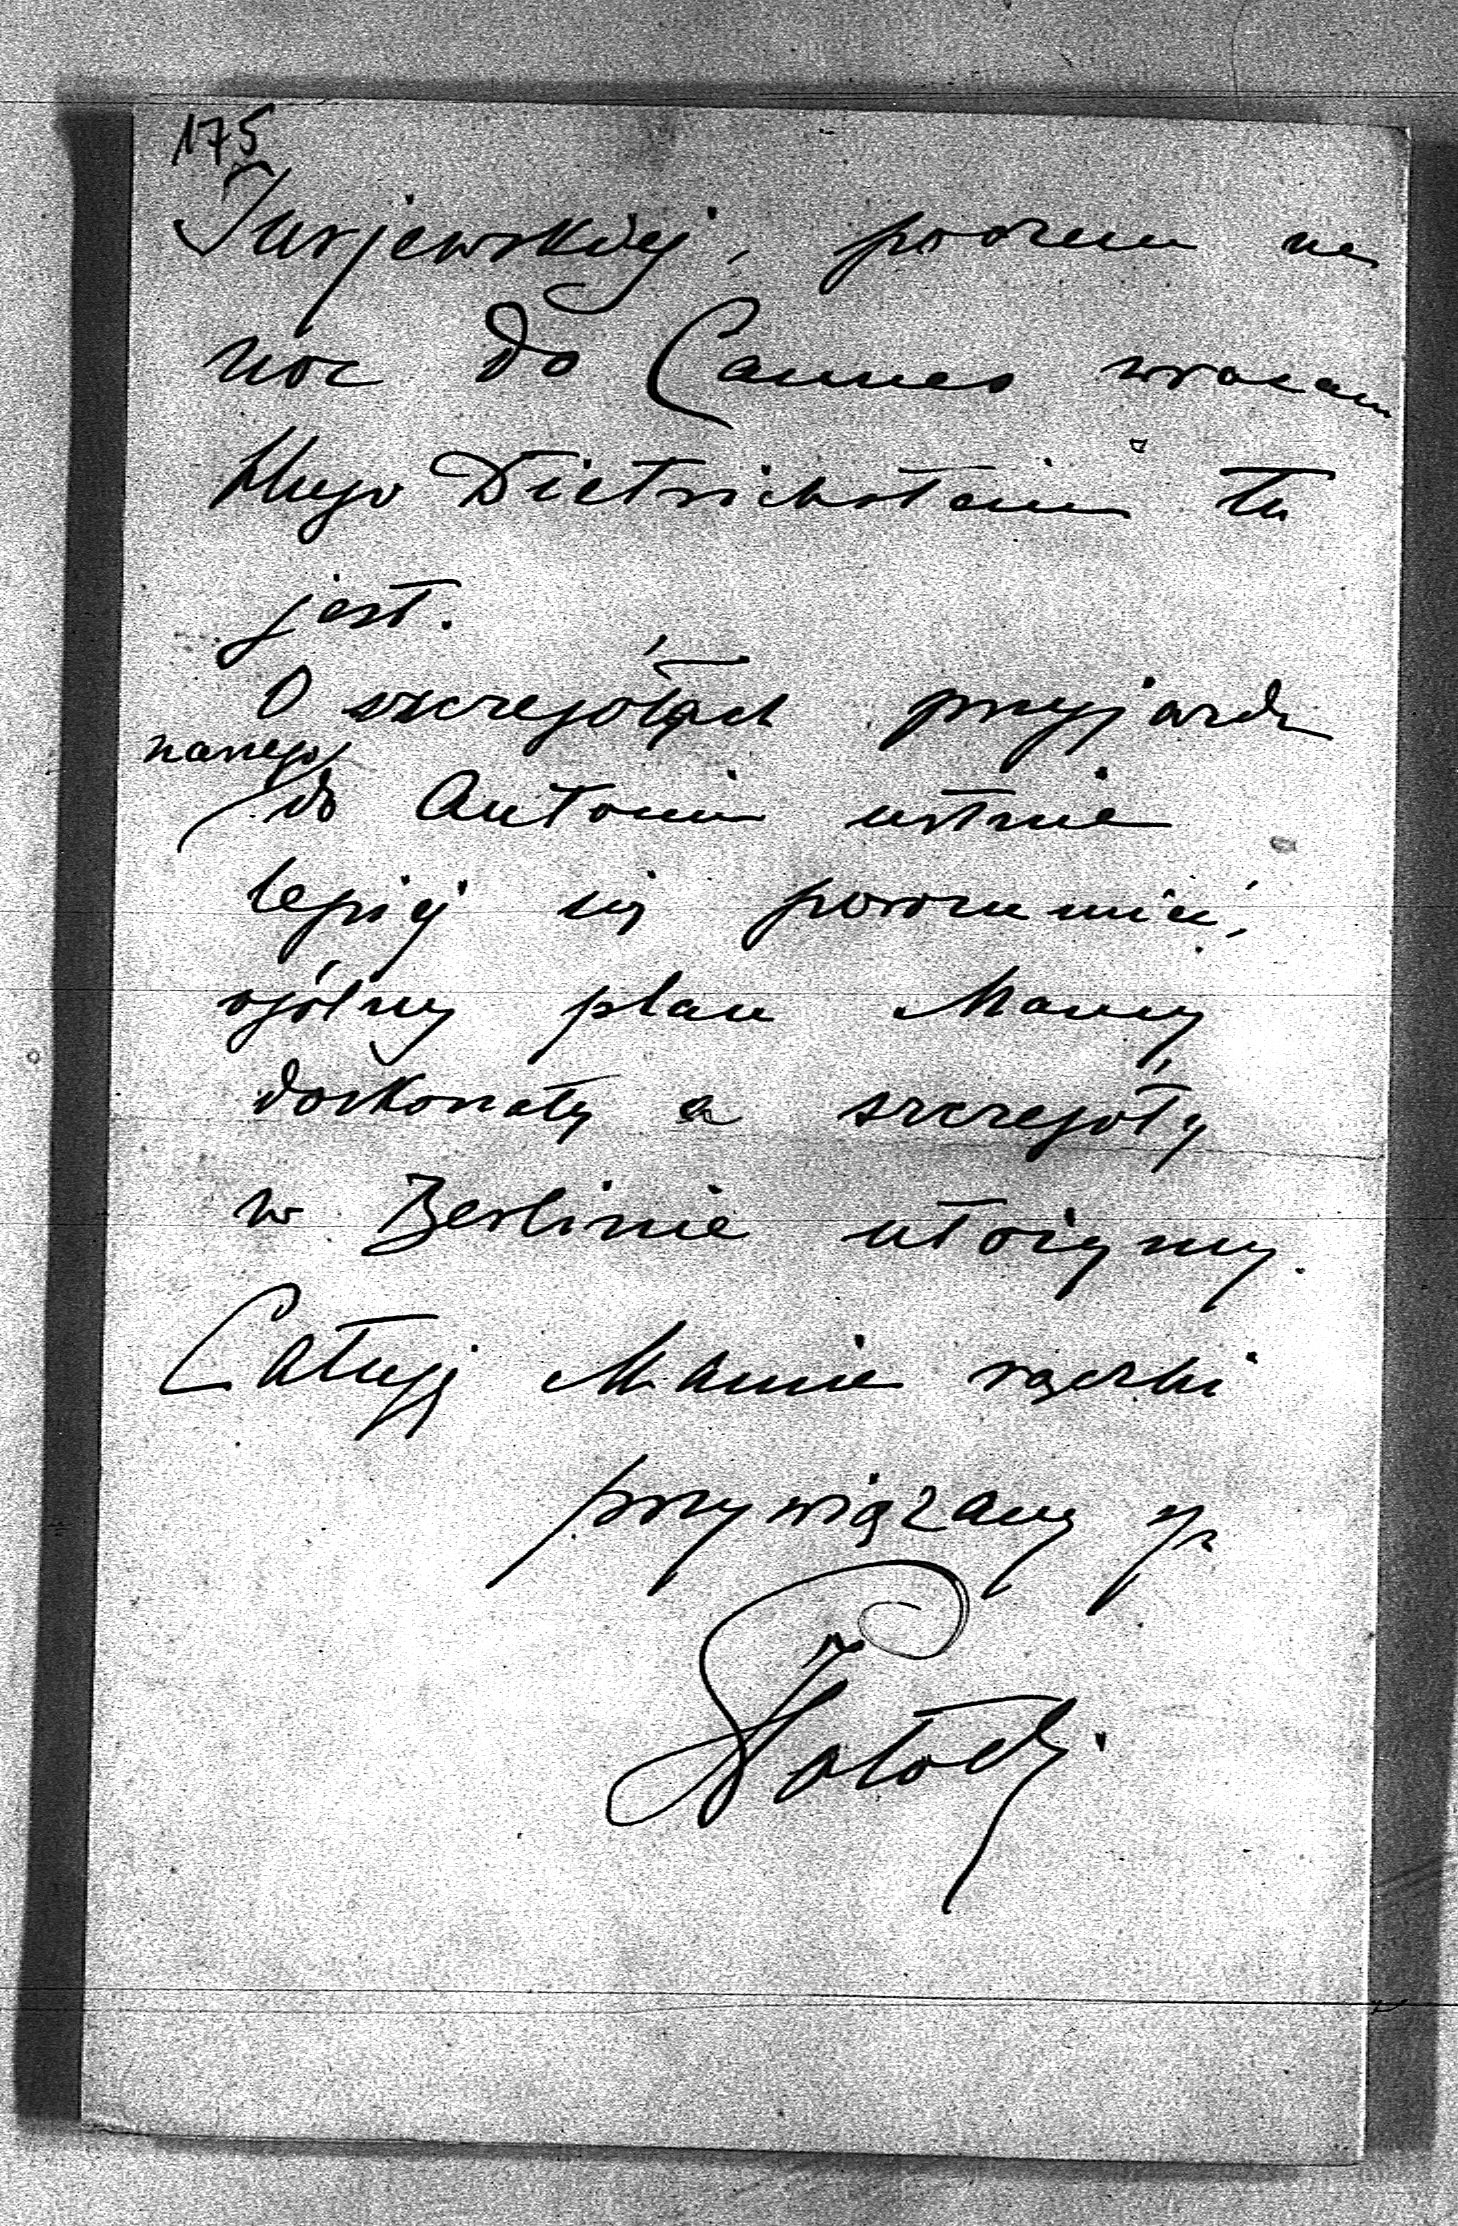 175
Jurjewskiej, poczem na
noc do Cannes wracam
Hugo Dietrichstein tu
jest.
O szczegółach przyjazdu
naszego
do Antonin ustnie
lepiej się porozumieć,
ogólny plan Mamy
doskonały a szczegóły
w Berlinie ułożymy.
Całuję Mamie rączki
przywiązany
Potocki